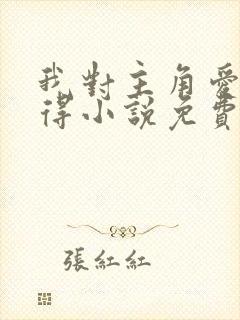 我對主角愛
得小說免費
張紅紅